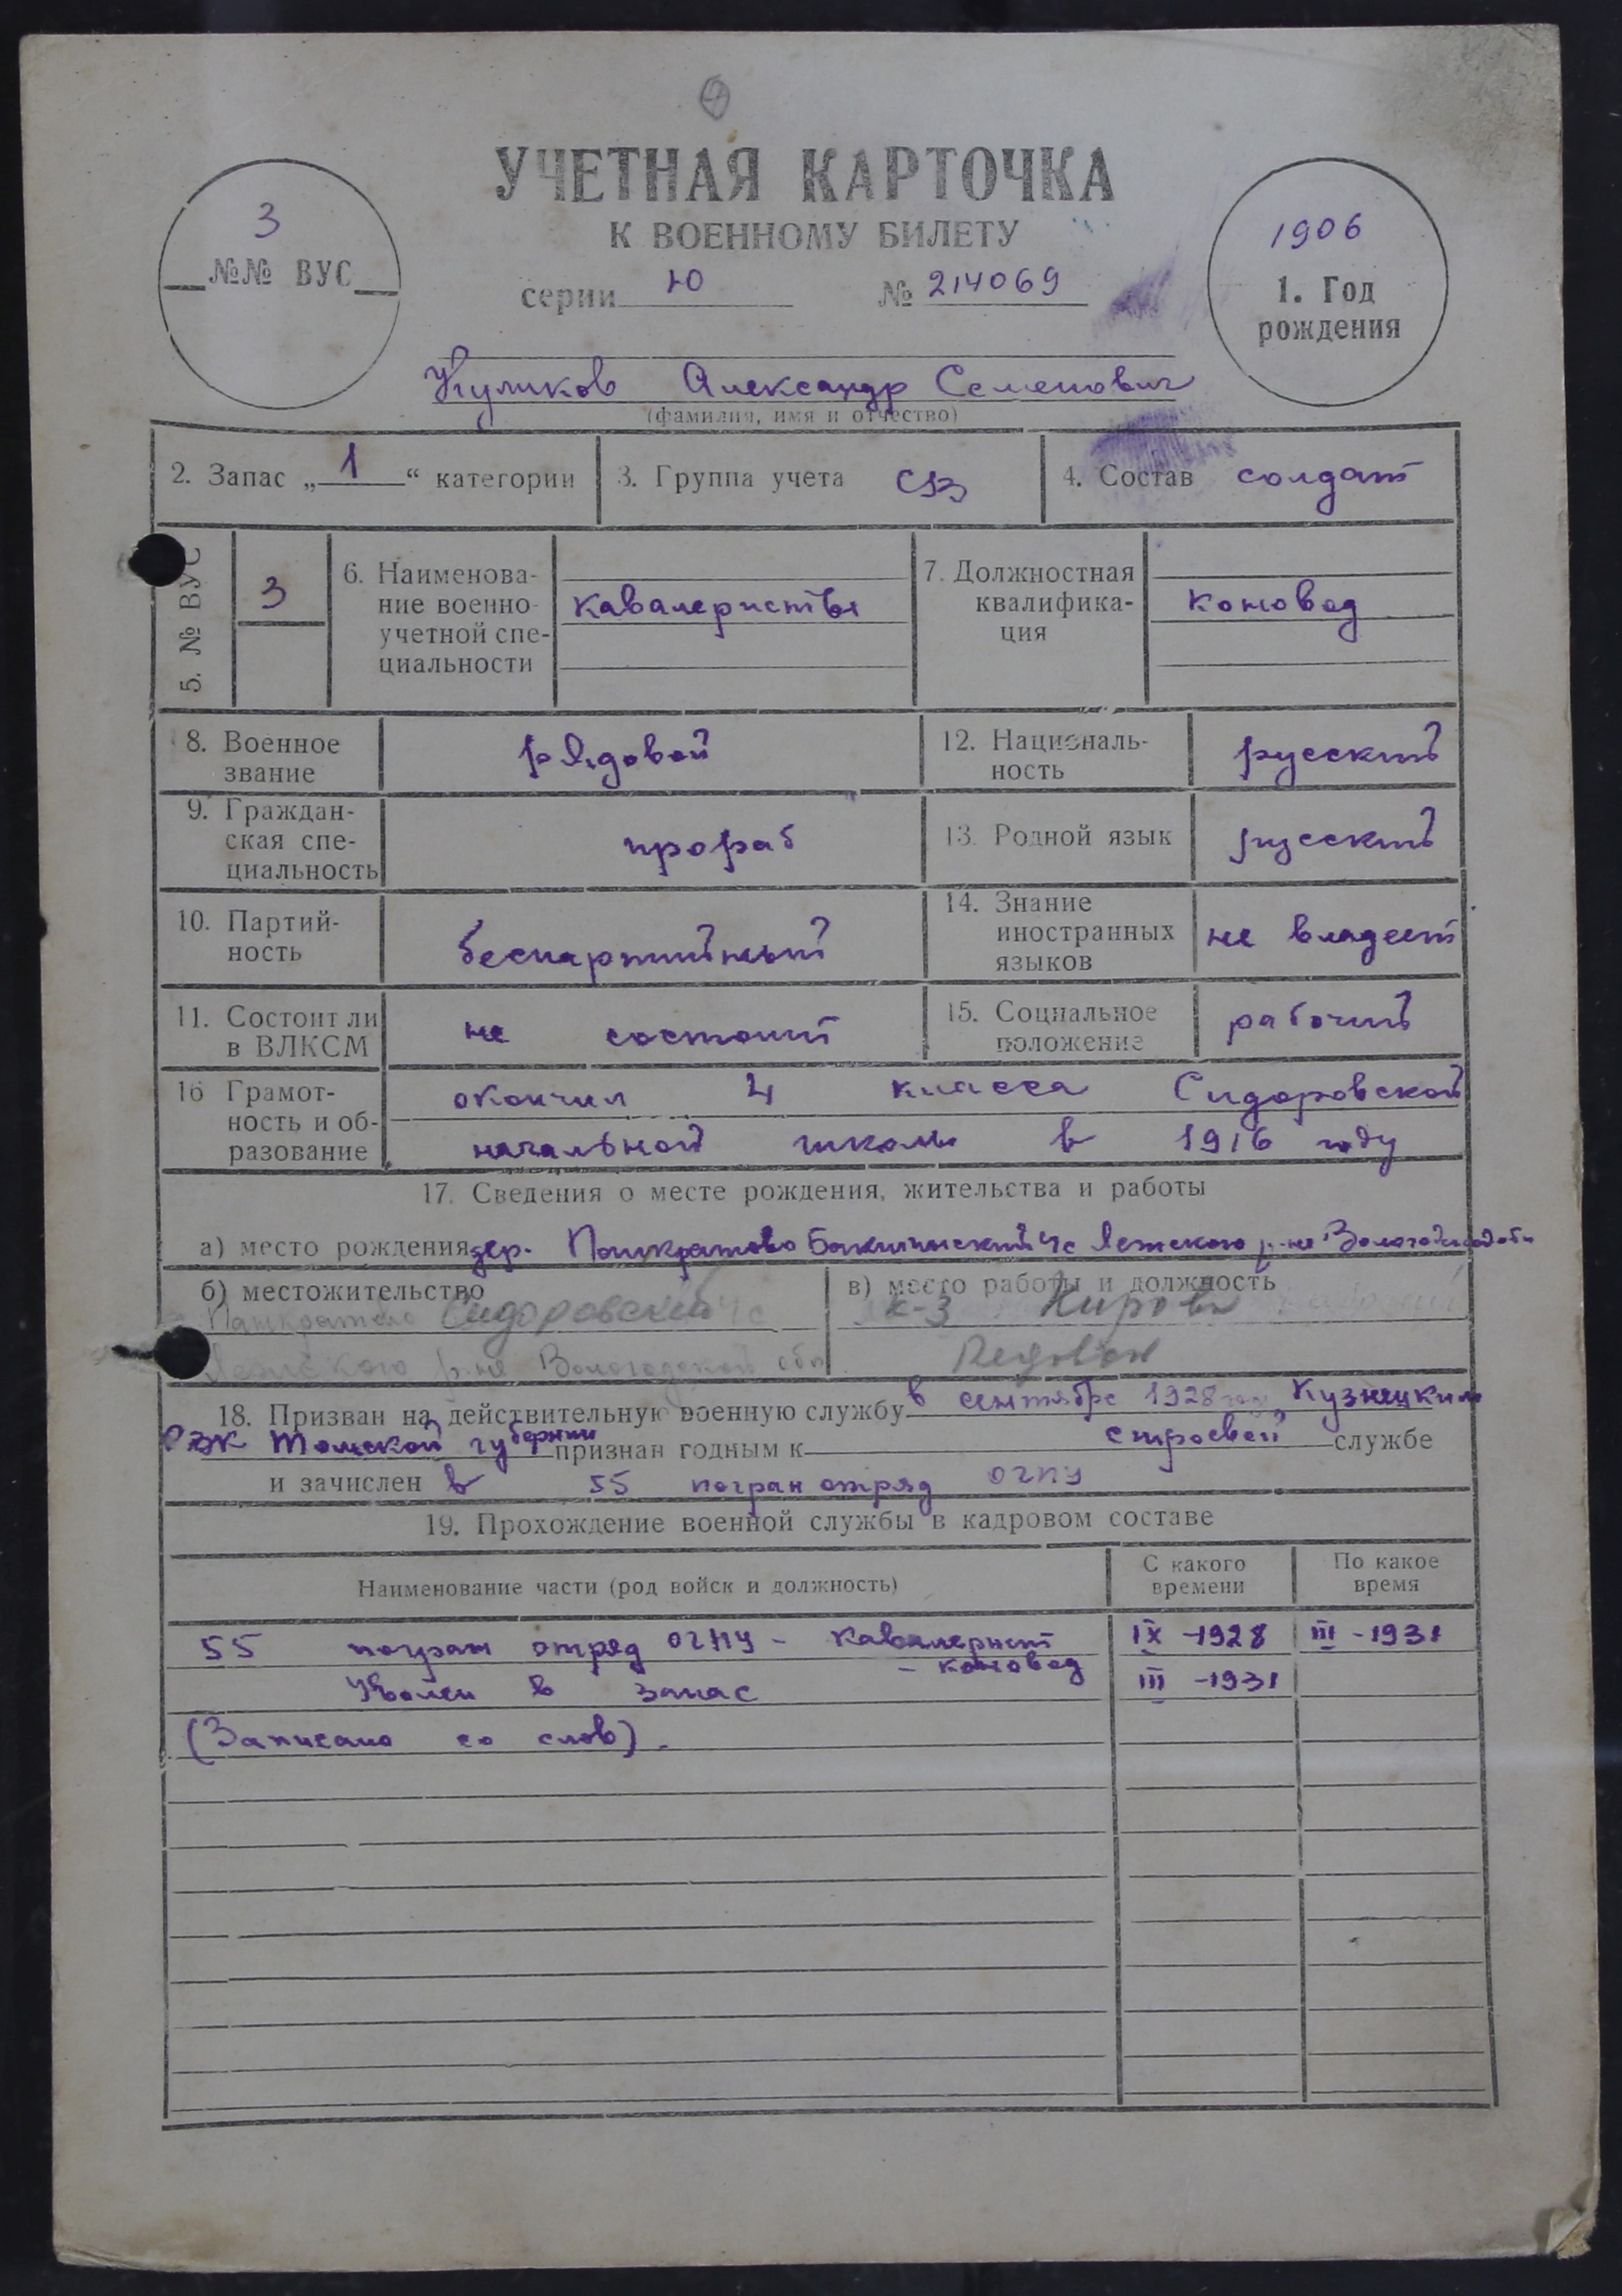 УЧЕТНАЯ КАРТОЧКА
К ВОЕННОМУ БИЛЕТУ
серии Ю № 214069
3
№№ ВУС
1906
1. Год
рождения
Куликов Александр Семенович
(фамилия, имя и отчество)
2. Запас „1“ категории
3. Группа учета СВ
4. Состав солдат
5. № ВУС
3
6. Наименова-
ние военно-
учетной спе-
циальности
кавалеристы
7. Должностная
квалифика-
ция
коновод
8. Военное
звание
рядовой
12. Националь-
ность
русский
9. Граждан-
ская спе-
циальность
прораб
13. Родной язык
русский
10. Партий-
ность
беспартийный
14. Знание
иностранных
языков
не владеет
11. Состоит ли
в ВЛКСМ
не состоит
15. Социальное
положение
рабочий
16 Грамот-
ность и об-
разование
окончил 4 класса Сидоровской
начальной школы в 1916 году
17. Сведения о месте рождения, жительства и работы
а) место рождения дер. Панкратово с Лежского р-на Вологодской
б) местожительство
Панкратово Сидоровский с
Лежского р-на Вологодской обл
в) место работы и должность
к-з Кирова
Рядовой
18. Призван на действительную военную службу в сентябре 1928 Кузнецким
РВК Томской губернии признан годным к строевой службе
и зачислен в 55 погран отряд ОГПУ
19. Прохождение военной службы в кадровом составе
Наименование части (род войск и должность)
С какого
времени
По какое
время
55 погран отряд ОГПУ - кавалерист IX -1928 III -1931
- коновод
Уволен в запас III -1931
(Записано со слов).